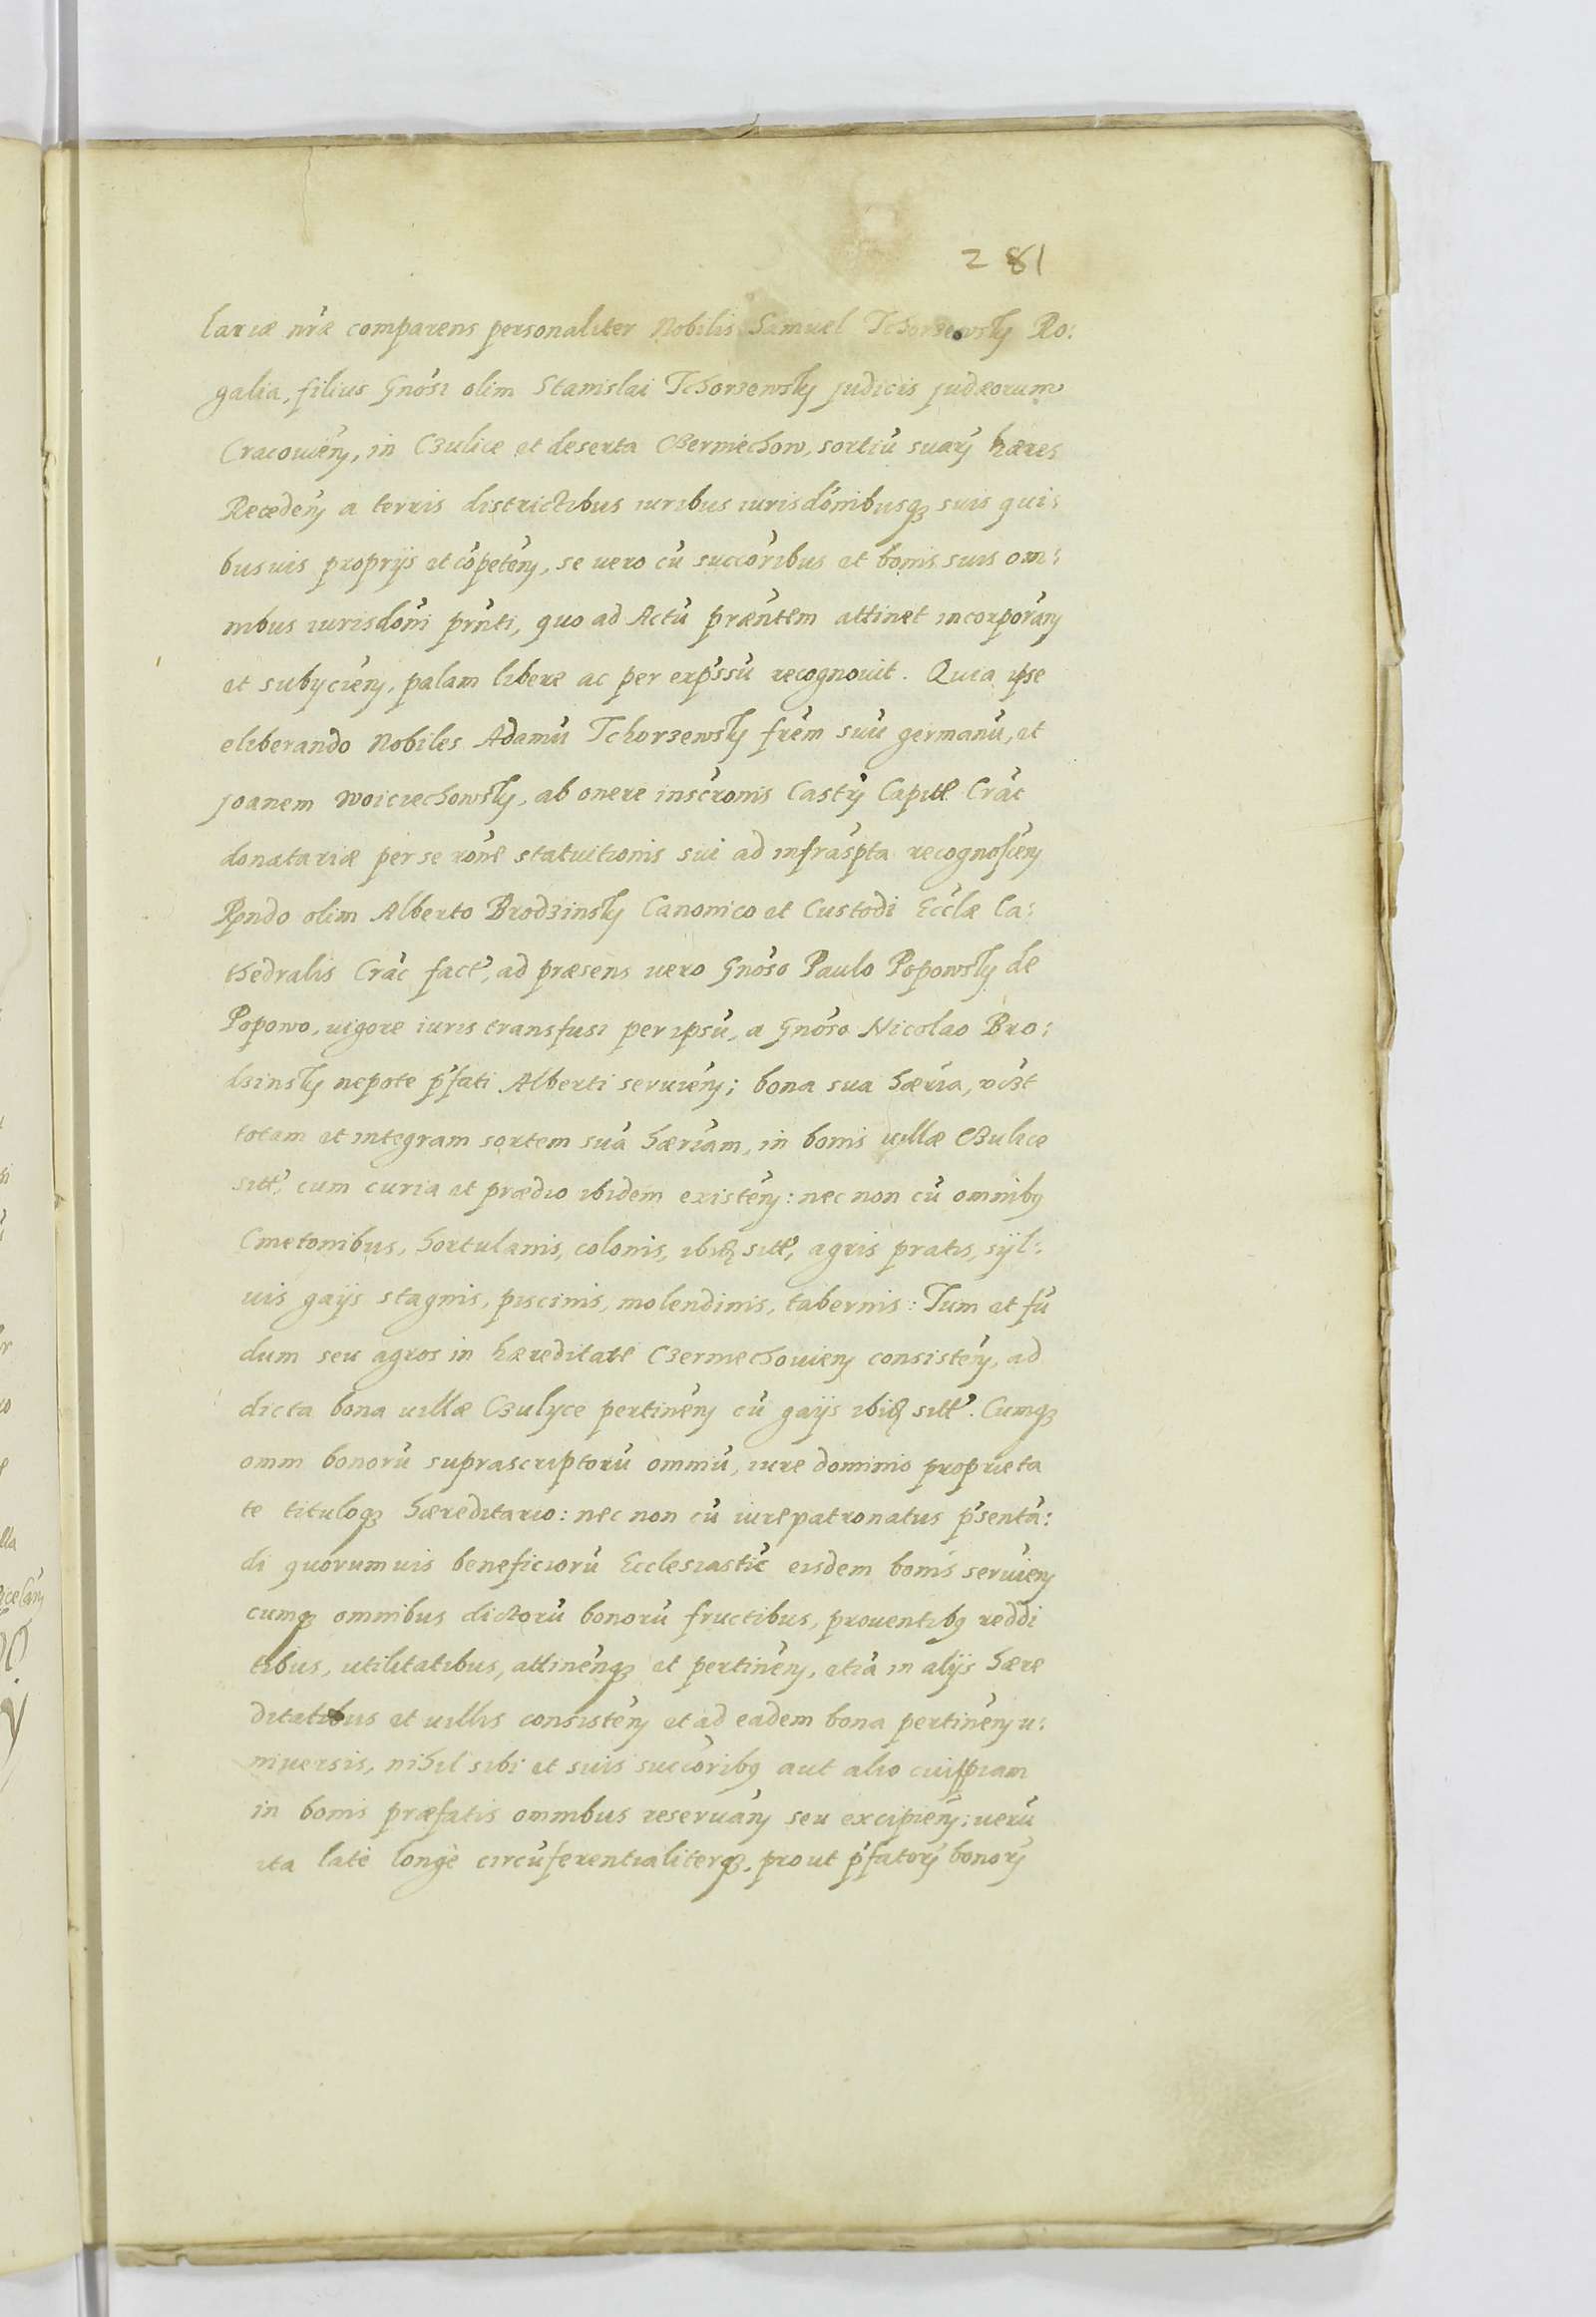 281
lariæ nr̃æ comparens personaliter Nobilis Samuel Tchorzewsky Ro:
galia, filius Gnosi olim Stanislai Tchorzewsky judicis judæorum
Cracouien̄, in Czulice et deserta Czermiechow, sortiū suarɥ hæres
Receden̄ a terris districtibus iuribus iurisdōnibusqȝ suis qui:
busuis proprijs et cōpetēn, se vero cū succōribus et bonis suis om:
nibus iurisdōni pr̄nti, quo ad Actū præntem attinet incorporān
et subijciēn, palam libere ac per exp̄ssū recognouit. Quia ipse
eliberando Nobiles Adamū Tchorzewsky frēm suū germanū, et
Joanem Woiciechowsky, ab onere inscrōnis Castrɥ Capitl Crac̄
donatariæ per se rōne statuitionis sui ad infrāspta recognoscēn
Rṇdo olim Alberto Brodzinsky Canonico et Custodi Eccl̄æ Ca:
thedralis Crac̄ fact̄, ad præsens vero Gnōso Paulo Popowsky de
Popowo, vigore iuris transfusi per ipsū, a Gnōso Nicolao Bro:
dzinsky nepote p̄fati Alberti seruiēn; bona sua hær̄ia, vīzt
totam et integram sortem suā hær̄iam, in bonis villæ Czulice
sitt̄, cum curia et prædio ibidem existēn: nec non cū omnibɥ
Cmetonibus, hortulanis, colonis, ibiđ sitt̄, agris pratis, syl:
uis gaijs stagnis, piscinis, molendinis, tabernis: Tum et fū
dum seu agros in hæreditate Czermechouien̄ consistēn, ad
dicta bona villæ Czulyce pertinēn cū gaijs ibiđ sitt̄. Cumqȝ
omni bonorū suprascriptorū omniū, iure dominio proprieta
te tituloqȝ hæreditario: nec non cū iurepatronatus p̄sentā:
di quorumuis beneficiorū Ecclesiastic̄ eisdem bonis seruien̄
cumqȝ omnibus dictorū bonorū fructibus, prouentibɥ reddi
tibus, utilitatibus, attinēnqȝ et pertinēn, etiā in alijs hære
ditatibus et villis consistēn et ad eadem bona pertinēn u:
niuersis, nihil sibi et suis succōribɥ aut alio cuispiam
in bonis præfatis omnibus reseruān seu excipiēn: verū
ita latè longè circūferentialiterqȝ, prout p̄fatorɥ bonorɥ